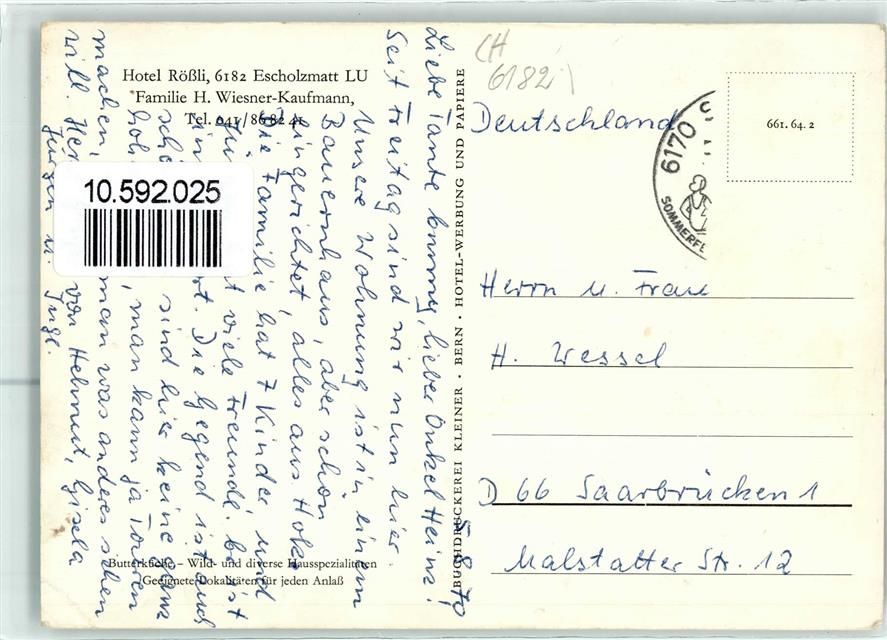 Hotel Rößli, 6182 Escholzmatt LU
Familie H. Wiesner-Kaufmann,
Tel. 041/86 82 41
10.592.025
5.8.70
Liebe Tante Emmy, lieber Onkel Heinz!
Seit Freitag sind wir nun hier.
Unsere Wohnung ist in einem
Bauernhaus, aber schön
eingerichtet, alles aus Holz.
Die Familie hat 7 Kinder und
für
viele Freunde. bist
in
rt. Die Gegend ist auch
schö
sind hier keine ganz
hoh
, man kann ja Touren
machen,
man was anderes sehen
will. Her
von Helmut, Gisela
Jürgen u. Ingr.
Butterküche – Wild- und diverse Hausspezialitäten
Geeignete Lokalitäten für jeden Anlaß
BUCHDRUCKEREI KLEINER · BERN · HOTEL-WERBUNG UND PAPIERE
CH
6182
Deutschland
6170
SOMMERFE
661.64.2
Herrn u. Frau
H. Wessel
D 66 Saarbrücken 1
Malstatter Str. 12